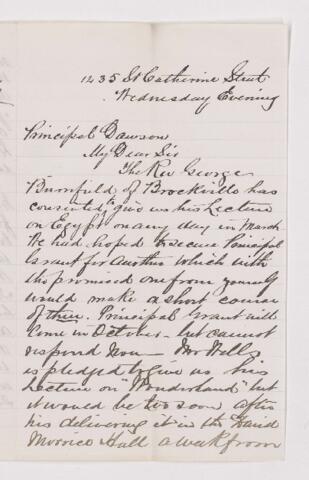 1235 St Catherine Street
Wednesday Evening
Principal Dawson
My Dear Sir
The Rev George
Burnfield of Brockville has
consented to give us his Lecture
on Egypt on any day in March
We had hoped to secure Principal
Grant for another which with
the promised one from yourself
would make a short course
of three. Principal Grant will
come in October - but cannot
respond now - Mr Wells.
is pledged to give us his
Lecture on "Wonderland" but
it would be too soon after
his delivering it in the David
Morrice Hall a week from